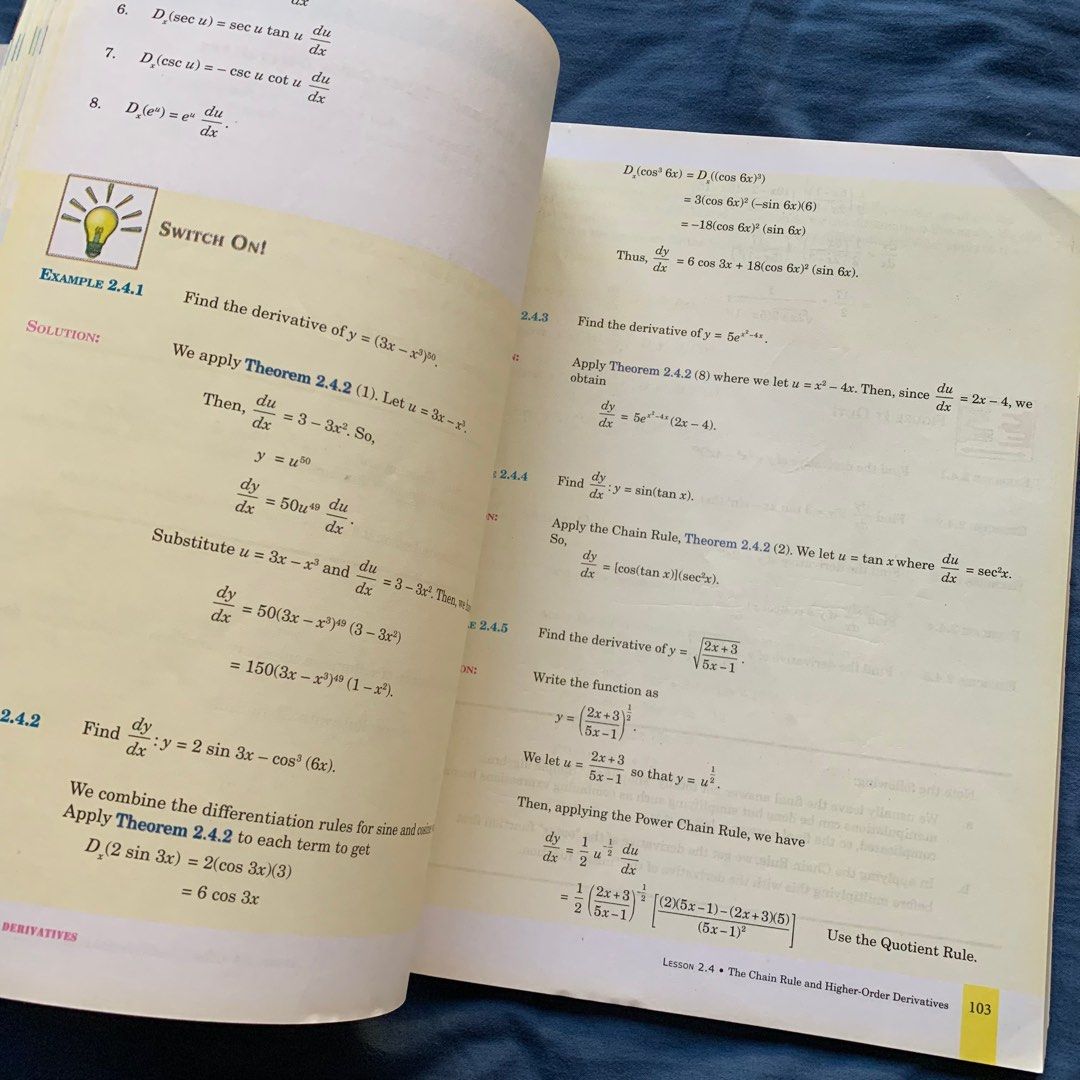 dx
6. Dₓ(sec u) = sec u tan u du/dx
7. Dₓ(csc u) = – csc u cot u du/dx
8. Dₓ(eᵘ) = eᵘ du/dx.
SWITCH ON!
EXAMPLE 2.4.1 Find the derivative of y = (3x – x³)⁵⁰.
SOLUTION: We apply Theorem 2.4.2 (1). Let u = 3x – x³.
Then, du/dx = 3 – 3x². So,
y = u⁵⁰
dy/dx = 50u⁴⁹ du/dx.
Substitute u = 3x – x³ and du/dx = 3 – 3x². Then, we
dy/dx = 50(3x – x³)⁴⁹ (3 – 3x²)
= 150(3x – x³)⁴⁹ (1 – x²).
2.4.2 Find dy/dx : y = 2 sin 3x – cos³ (6x).
We combine the differentiation rules for sine and cosine
Apply Theorem 2.4.2 to each term to get
Dₓ(2 sin 3x) = 2(cos 3x)(3)
= 6 cos 3x
DERIVATIVES
Dₓ(cos³ 6x) = Dₓ((cos 6x)³)
= 3(cos 6x)² (–sin 6x)(6)
= –18(cos 6x)² (sin 6x)
Thus, dy/dx = 6 cos 3x + 18(cos 6x)² (sin 6x).
2.4.3 Find the derivative of y = 5e^(x²–4x).
Apply Theorem 2.4.2 (8) where we let u = x² – 4x. Then, since du/dx = 2x – 4, we
obtain
dy/dx = 5e^(x²–4x) (2x – 4).
2.4.4 Find dy/dx : y = sin(tan x).
Apply the Chain Rule, Theorem 2.4.2 (2). We let u = tan x where du/dx = sec²x.
So,
dy/dx = [cos(tan x)](sec²x).
2.4.5 Find the derivative of y = √((2x+3)/(5x–1)).
Write the function as
y = ((2x+3)/(5x–1))^(1/2).
We let u = (2x+3)/(5x–1) so that y = u^(1/2).
Then, applying the Power Chain Rule, we have
dy/dx = 1/2 u^(–1/2) du/dx
= 1/2 ((2x+3)/(5x–1))^(–1/2) [((2)(5x–1)–(2x+3)(5))/(5x–1)²] Use the Quotient Rule.
LESSON 2.4 • The Chain Rule and Higher-Order Derivatives 103